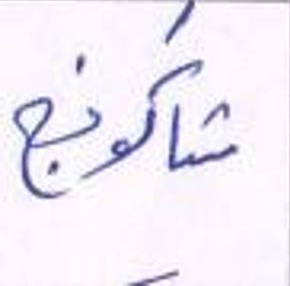 شاكونج